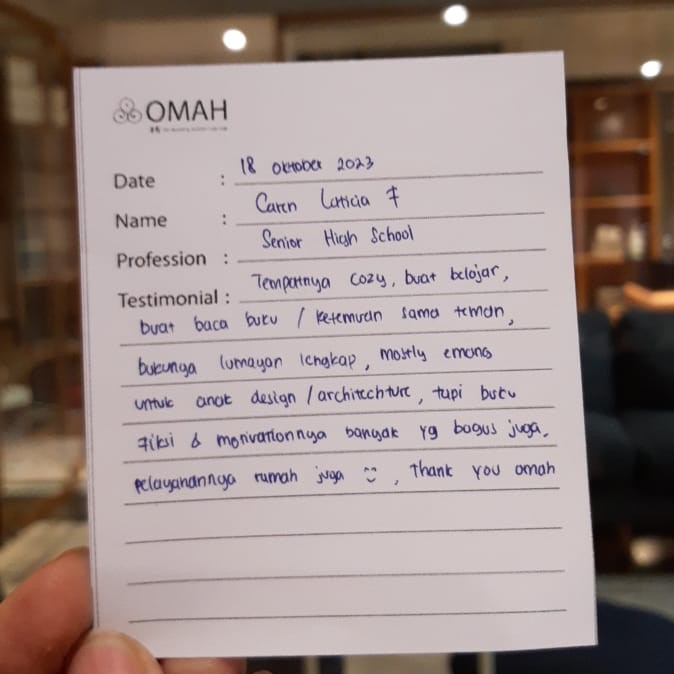 OMAH
Date : 18 Oktober 2023
Name : Caren Laticia F
Profession : Senior High School
Testimonial : Tempatnya cozy, buat belajar,
buat baca buku / ketemuan sama teman,
bukunya lumayan lengkap, mostly emang
untuk anak design / architechture, tapi buku
Fiksi & motivationnya banyak yg bagus juga.
pelayanannya ramah juga , Thank you omah